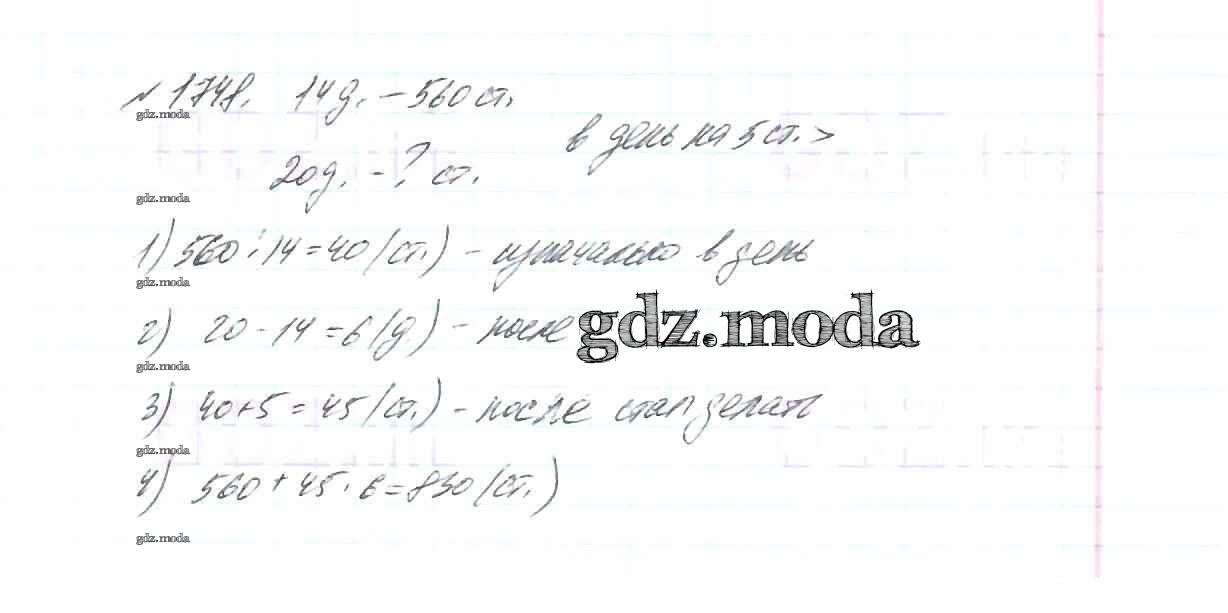 № 1748. 14 д. – 560 ст.
gdz.moda
в день на 5 ст. >
20 д. – ? ст.
gdz.moda
1) 560 : 14 = 40 (ст.) – изначально в день
gdz.moda
2) 20 – 14 = 6 (д.) – после
gdz.moda
gdz.moda
3) 40 + 5 = 45 (ст.) – после стал делать
gdz.moda
4) 560 + 45 · 6 = 830 (ст.)
gdz.moda